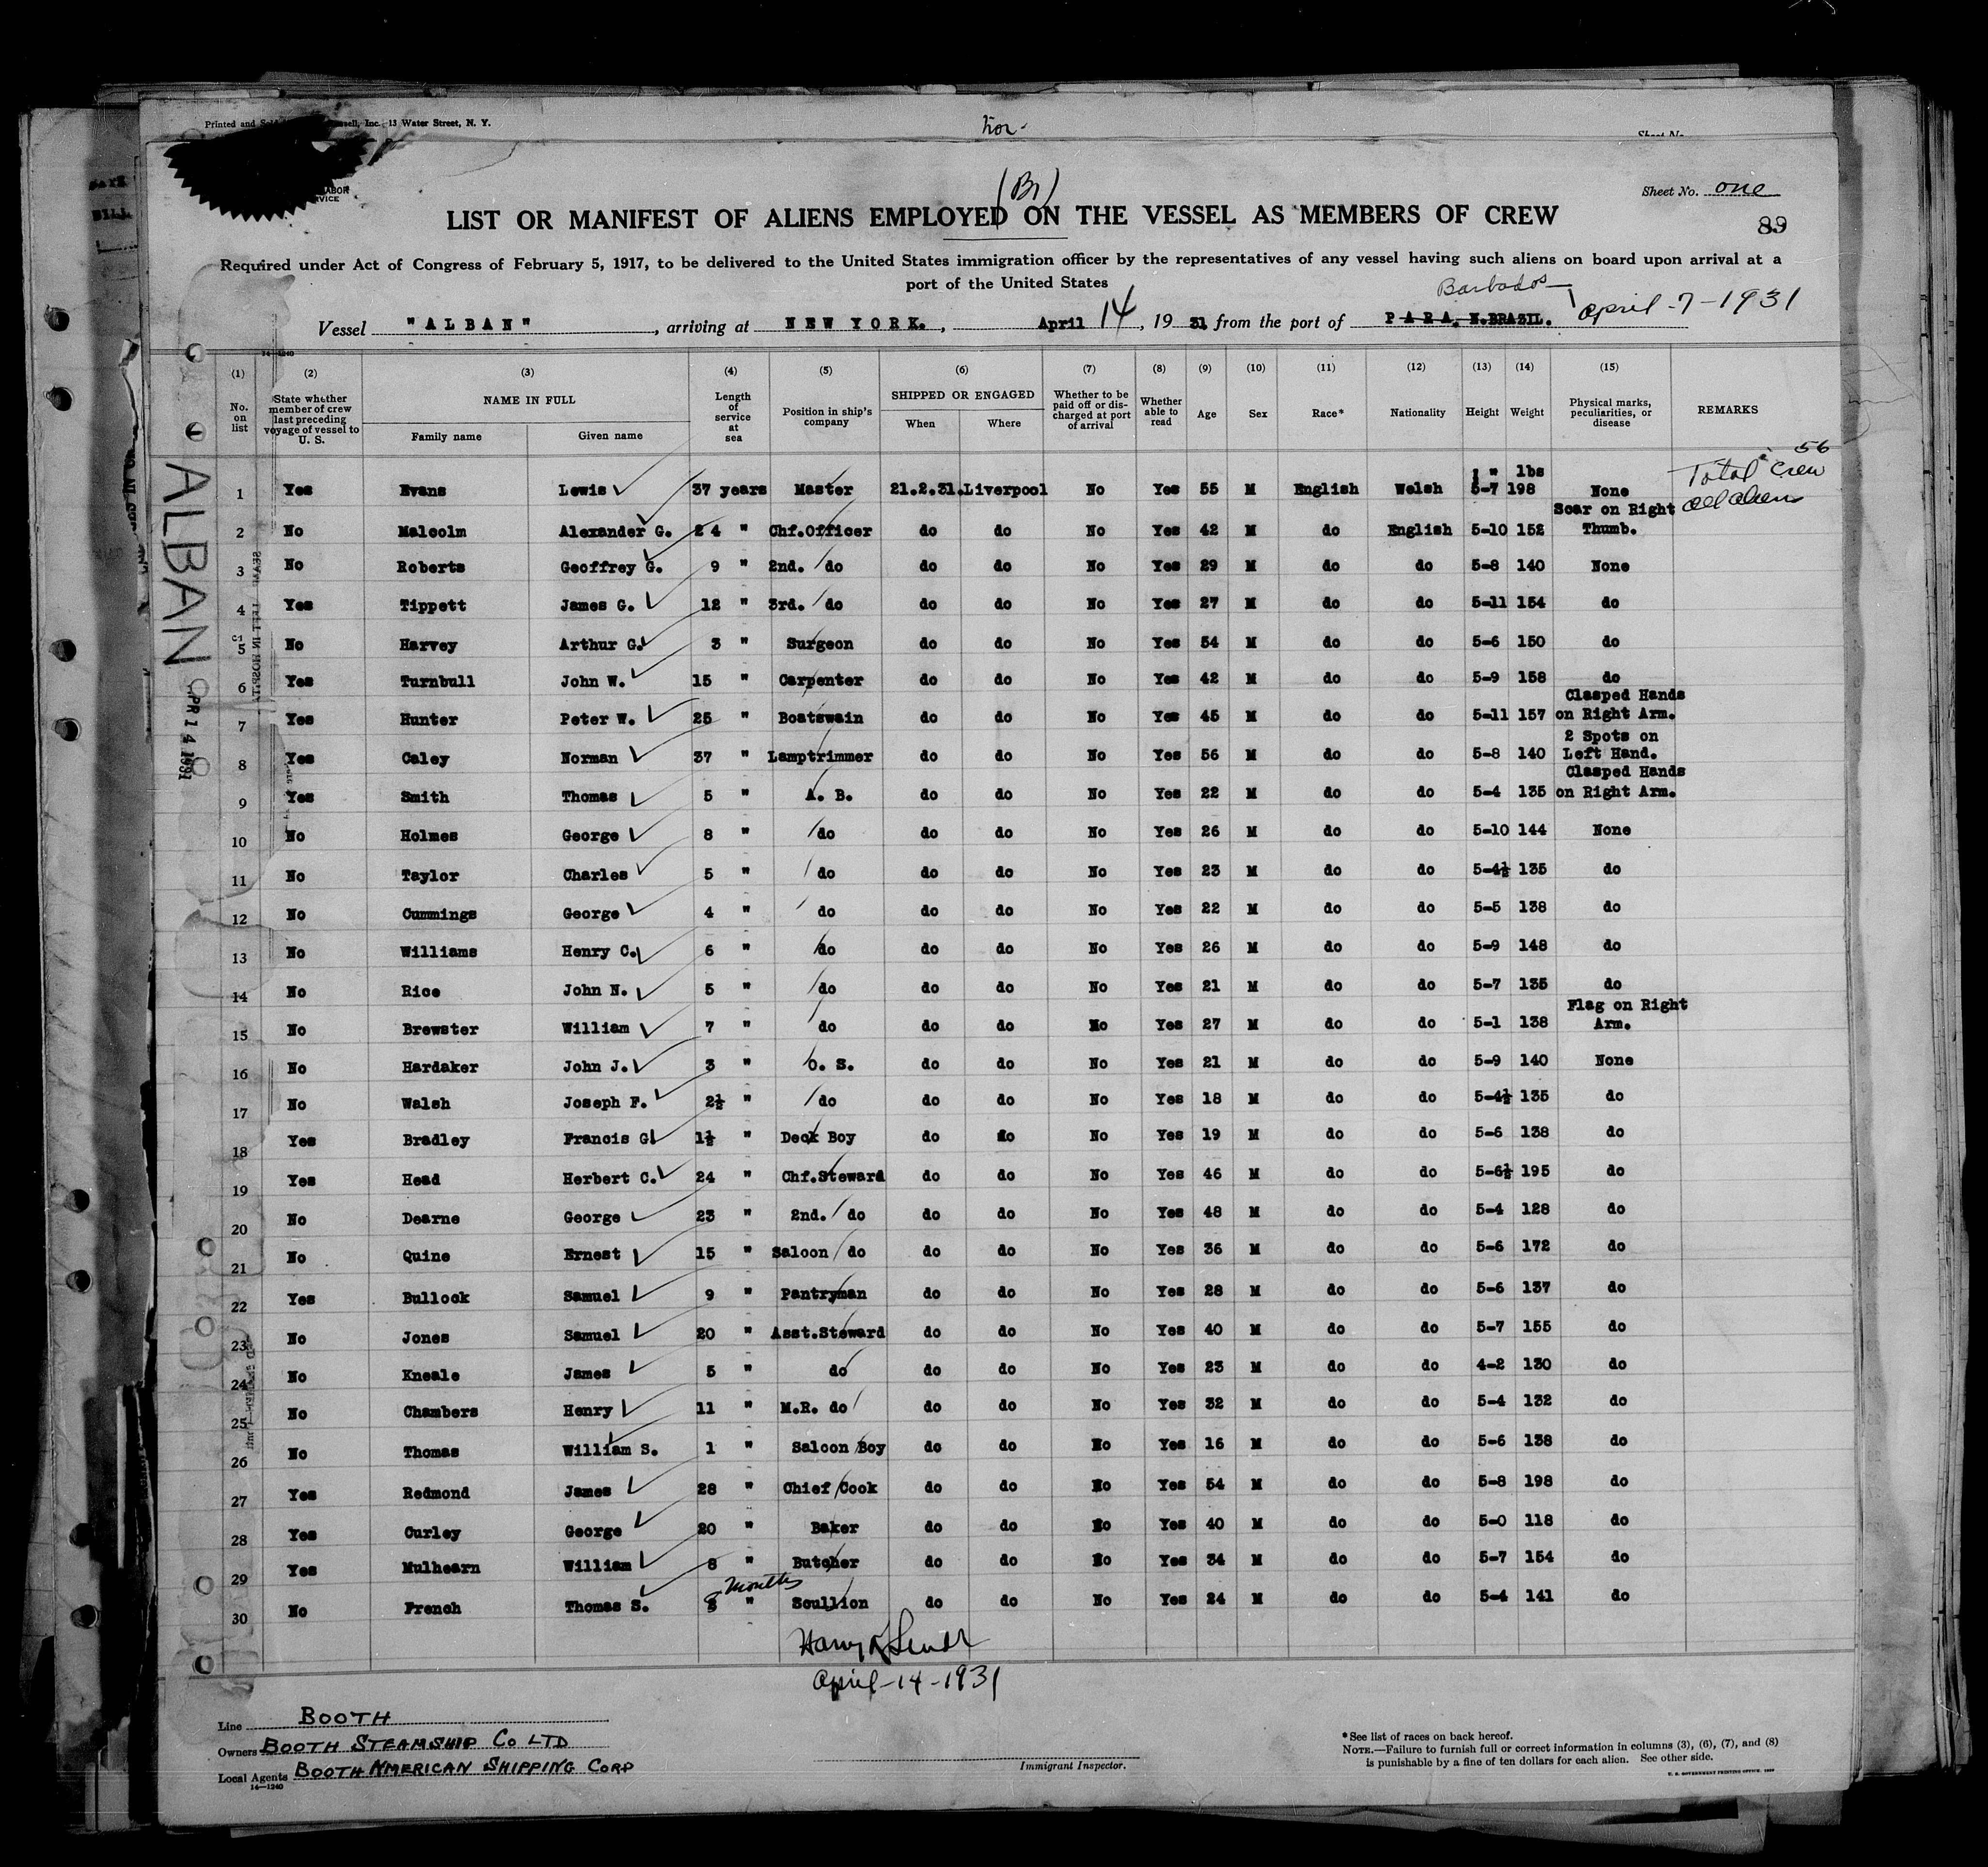 Printed and Sold Inc., 13 Water Street, N. Y.
Sheet No.
(Br)
Sheet No. one
LIST OR MANIFEST OF ALIENS EMPLOYED ON THE VESSEL AS MEMBERS OF CREW
89
Required under Act of Congress of February 5, 1917, to be delivered to the United States immigration officer by the representatives of any vessel having such aliens on board upon arrival at a
port of the United States
Barbados
Vessel "ALBAN", arriving at NEW YORK., April 14, 19 31 from the port of PARA, N.BRAZIL. April-7-1931
14-1240
(1) (2) (3) (4) (5) (6) (7) (8) (9) (10) (11) (12) (13) (14) (15)
No. on list State whether member of crew last preceding voyage of vessel to U. S. NAME IN FULL Family name Given name Length of service at sea Position in ship's company SHIPPED OR ENGAGED When Where Whether to be paid off or discharged at port of arrival Whether able to read Age Sex Race* Nationality Height Weight Physical marks, peculiarities, or disease REMARKS
ALBAN
APR 14 1931
56
Total crew
all aliens
1 Yes Evans Lewis 37 years Master 21.2.31. Liverpool No Yes 55 M English Welsh 5-7 198 lbs None
2 No Malcolm Alexander G. 24 " Chf.Officer do do No Yes 42 M do English 5-10 152 Scar on Right Thumb.
3 No Roberts Geoffrey G. 9 " 2nd. do do do No Yes 29 M do do 5-8 140 None
4 Yes Tippett James G. 12 " 3rd. do do do No Yes 27 M do do 5-11 154 do
5 No Harvey Arthur G. 3 " Surgeon do do No Yes 54 M do do 5-6 150 do
6 Yes Turnbull John W. 15 " Carpenter do do No Yes 42 M do do 5-9 158 do
7 Yes Hunter Peter W. 25 " Boatswain do do No Yes 45 M do do 5-11 157 Clasped Hands on Right Arm.
8 Yes Caley Norman 37 " Lamptrimmer do do No Yes 56 M do do 5-8 140 2 Spots on Left Hand.
9 Yes Smith Thomas 5 " A. B. do do No Yes 22 M do do 5-4 135 Clasped Hands on Right Arm.
10 No Holmes George 8 " do do do No Yes 26 M do do 5-10 144 None
11 No Taylor Charles 5 " do do do No Yes 23 M do do 5-4½ 135 do
12 No Cummings George 4 " do do do No Yes 22 M do do 5-5 138 do
13 No Williams Henry C. 6 " do do do No Yes 26 M do do 5-9 148 do
14 No Rice John N. 5 " do do do No Yes 21 M do do 5-7 135 do
15 No Brewster William 7 " do do do No Yes 27 M do do 5-1 138 Flag on Right Arm.
16 No Hardaker John J. 3 " O. S. do do No Yes 21 M do do 5-9 140 None
17 No Walsh Joseph F. 2½ " do do do No Yes 18 M do do 5-4½ 135 do
18 Yes Bradley Francis G. 1½ " Deck Boy do do No Yes 19 M do do 5-6 138 do
19 Yes Head Herbert C. 24 " Chf.Steward do do No Yes 46 M do do 5-6½ 195 do
20 No Dearne George 23 " 2nd. do do do No Yes 48 M do do 5-4 128 do
21 No Quine Ernest 15 " Saloon do do do No Yes 36 M do do 5-6 172 do
22 Yes Bullock Samuel 9 " Pantryman do do No Yes 28 M do do 5-6 137 do
23 No Jones Samuel 20 " Asst.Steward do do No Yes 40 M do do 5-7 155 do
24 No Kneale James 5 " do do do No Yes 23 M do do 4-2 130 do
25 No Chambers Henry 11 " M.R. do do do No Yes 32 M do do 5-4 132 do
26 No Thomas William S. 1 " Saloon Boy do do No Yes 16 M do do 5-6 138 do
27 Yes Redmond James 28 " Chief Cook do do No Yes 54 M do do 5-8 198 do
28 Yes Curley George 20 " Baker do do No Yes 40 M do do 5-0 118 do
29 Yes Mulhearn William 8 " Butcher do do No Yes 34 M do do 5-7 154 do
30 No French Thomas S. 8 months " Scullion do do No Yes 24 M do do 5-4 141 do
April-14-1931
Line BOOTH
Owners BOOTH STEAMSHIP CO LTD
Local Agents BOOTH AMERICAN SHIPPING CORP
14-1240
Immigrant Inspector.
*See list of races on back hereof.
NOTE.—Failure to furnish full or correct information in columns (3), (6), (7), and (8)
is punishable by a fine of ten dollars for each alien. See other side.
U. S. GOVERNMENT PRINTING OFFICE